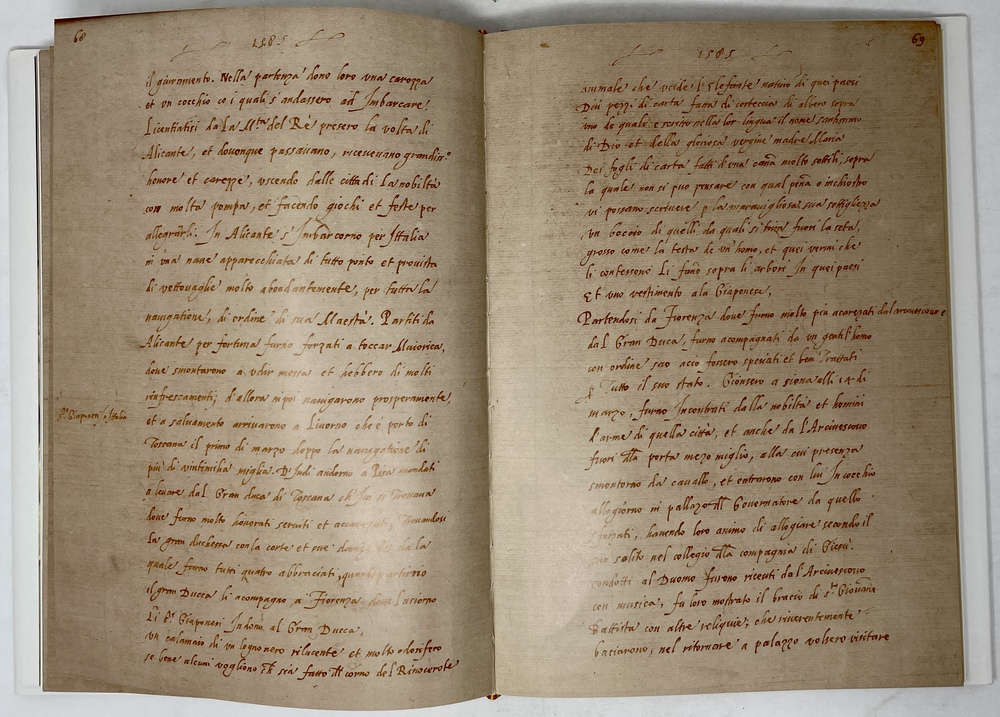 68
1585
il giuramento. Nella partenza dono loro una carozza
et un cocchio co i quali s'andassero ad Imbarcare.
Licentiatisi da La M.ta del Rè presero la volta di
Alicante, et dovonque passavano, ricevevano grandiss.o
honore et carezze, uscendo dalle città di La nobiltà
con molta pompa, et facendo giochi et feste per
allegrarli. In Alicante s'Imbarcorno per Ittalia
in una nave apparecchiata di tutto ponto et provista
di vettovaglie molto abondantemente, per tutta la
navigatione, di ordine di sua Maestà. Partiti da
Alicante per fortuna furno forzati a toccar Maiorica,
dove smontarono a udir messa et hebbero di molti
rinfrescamenti; d'allora in poi navigarono prosperamente,
S.ri Giaponeri in Italia
et a salvamento arrivarono a Livorno che è porto di
Toscana il primo di marzo doppo la navigatione di
più di vintimilia miglia. D'Indi andorno a Pisa mandati
a levare dal Gran duca di Toscana ch'Ivi si trovava
dove furno molto honorati serviti et accarezzati, Trovandosi
La gran duchessa con la corte et sue da la
quale furno tutti quatro abbracciati, quando partirno
il gran Ducca li acompagno a Fiorenza
Li S.ri Giaponeri Indono al Gran Ducca,
un calamaio di un legno nero rilucente et molto odorifero
se bene alcuni vogliono ch sia fatto dll corno del Rinocerote
69
1585
animale che uccide l'Elefante nativo di quei paesi
Dui pezzi di carta fatta di corteccia di albero sopra
uno de quali è scritto nella lor lingua il nome santissimo
di Dio et della gloriosa vergine madre Maria
Doi fogli di carta fatti d'una cana molto sottili, sopra
la quale non si puo pensare con qual pena o inchiostro
vi possano scrivere p la maravigliosa sua sottigliezza
un bocoio di quelli da quali si tira fuori la seta,
grosso come la testa de un homo, et quei vermi che
li contessono Li fano sopra li arbori In quei paesi
Et uno vestimento a la Giaponese.
Partendosi da Fiorenza dove furno molto più acarezati dal arcivescovo e
dal Gran Ducca, furno acompagnati da un gentil homo
con ordine suo acciò fossero spesiati et ben Trattati
p Tutto il suo stato. Gionsero a siena alli di
marzo, furno Incontrati dalla nobiltà et homini
d'arme di quella città, et anche da l'Arcivescovo
fuori dlla porta mezo miglio, alla cui presenza
smontorno da cavallo, et entrarono con lui In cocchio
allogiorno in pallazo dll Governatore da quello
sforzati, havendo loro animo di allogiare secondo il
suo solito nel collegio dlla compagnia di Giesù.
condotti al Duomo furono ricevti da l'Arcivescovo
con musica, fu loro mostrato il bracio di s.to Giovanni
Battista con altre reliquie; che riverentemente
baciarono, nel ritornare a palazzo volsero visitare